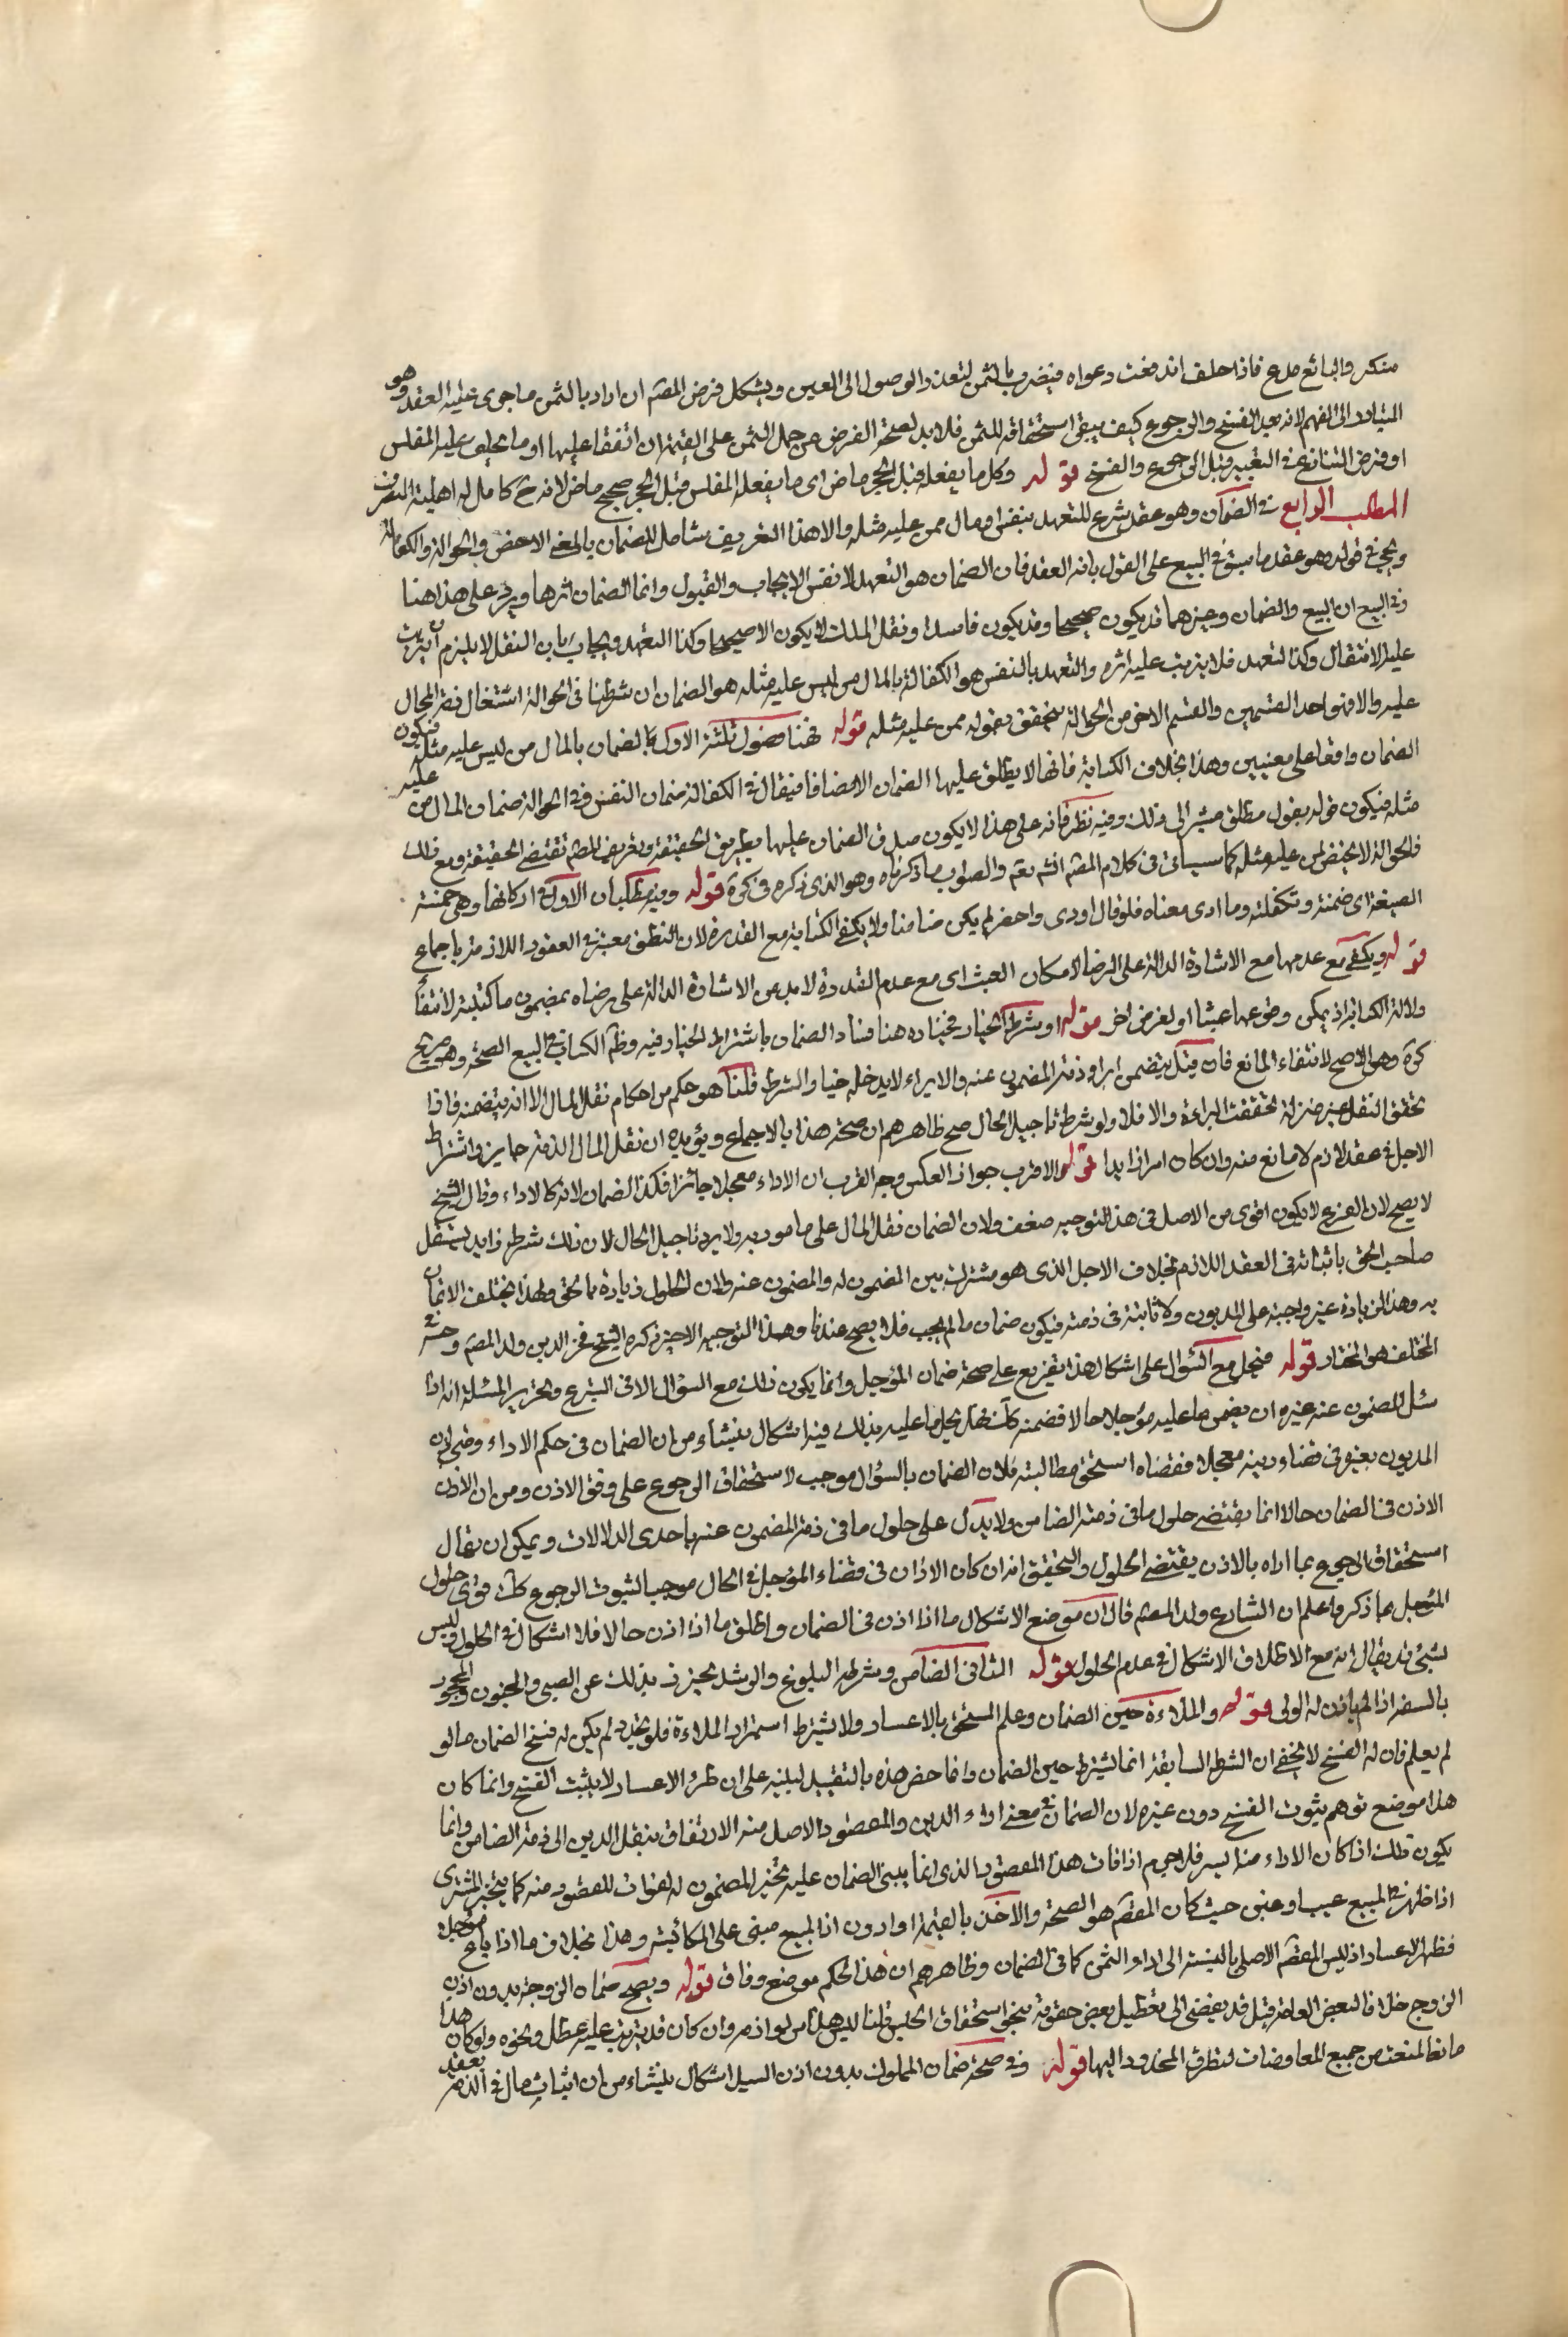 منكر والبائع مدع فاذا حلف اندفعت دعواه فيضرب بالثمن لتعذر الوصول الى العين ويشكل فرض المصّ ان اراد بالثمن ما جرى عليه العقد وهو
المتبادر الى الفهم لانه بعد الفسخ والرجوع كيف يبقى استحقاقه للثمن فلابد لصحة الفرض من حمل الثمن على القيمة ان اتفقا عليها او ما يحلف عليه المفلس
او فرض التنازع في التغيير قبل الرجوع والفسخ قوله وكل ما يفعله قبل الحجر ماض اى ما يفعله المفلس قبل الحجر صحيح ماض لانه ح كامل له اهلية التصرف
المطلب الرابع في الضمان وهو عقد شرع للتعهد بنفس او مال ممن عليه مثله والا هذا التعريف شامل للضمان بالمعنى الاخص والحوالة والكفالة
ويجئ في قوله وهو عقد ما سبق في البيع على القول بانه العقد فان الضمان هو التعهد لا نفس الايجاب والقبول وانما الضمان اثرها ويرد على هذا هنا
وفي البيع ان البيع والضمان وغيرهما قد يكون صحيحا وقد يكون فاسدا ونقل الملك لا يكون الا صحيحا وكذا التعهد ويجاب بان النقل لا يلزم ان يترتب
عليه الانتقال وكذا التعهد فلا يترتب عليه اثره والتعهد بالنفس هو الكفالة بالمال ممن ليس عليه مثله هو الضمان ان شرطنا في الحوالة اشتغال ذمة المحال
عليه والا فهو احد القسمين والقسم الاخر من الحوالة يتحقق بقوله ممن عليه مثله قوله فهنا فصول ثلثة الاول بالضمان بالمال ممن ليس عليه مثله فيكون
الضمان واقعا على معنيين وهذا بخلاف الكتابة فانها لا يطلق عليها الضمان الا مضافا فيقال في الكفالة ضمان النفس وفي الحوالة ضمان المال ممن عليه
مثله فيكون قوله بقول مطلق مشيرا الى ذلك وفيه نظر فانه على هذا لا يكون صدق الضمان عليها بطريق الحقيقة وتعريف المصّ تقتضي الحقيقة ومع ذلك
فالحوالة لا يختص بمن عليه مثله كما سيأتي في كلام المصّ انشـ تعـ والصواب ما ذكرناه وهو الذى ذكره في كرة قوله وفيه مطلبان الاول في اركانها وهي خمسة
الصيغة اى ضمنت وتكفلت وما ادى معناه فلو قال اودى واحضر لم يكن ضامنا ولا يكفي الكتابة مع القدرة لان النطق معتبر في العقود اللازمة باجماع
قوله ويكفي مع عدمها مع الاشارة الدالة على الرضا لامكان العبث اى مع عدم القدرة لا بد من الاشارة الدالة على رضاه بمضمون ما كتبه لانتفاء
دلالة الكتابة اذ يمكن وقوعها عبثا او لغرض اخر قوله او شرط الخيار مختاره هنا فساد الضمان باشتراط الخيار فيه وظـ الكتاب في البيع الصحة وهو صريح
كرة وهو الاصح لانتفاء المانع فان قيل يتضمن ابراء ذمة المضمون عنه والابراء لا يدخله خيار الشرط قلنا هو حكم من احكام نقل المال الا انه يتضمنه فاذا
تحقق النقل متزلزلا تحققت البراءة والا فلا ولو شرط تاجيل الحال صح ظاهرهم ان صحة هذا بالاجماع ويؤيده ان نقل المال الى الذمة جايز واشتراط
الاجل في عقد لازم لا مانع منه وان كان امرا زايدا قوله والاقرب جواز العكس وجه القرب ان الاداء معجلا جائز فكذا الضمان لانه كالاداء وقال الشيخ
لا يصح لان الفرع لا يكون اقوى من الاصل في هذا التوجيه ضعف ولان الضمان نقل المال على ما هو به ولا يرد تاجيل الحال لان ذلك شرط زايد يستقل
صاحب الحق باثباته في العقد اللازم بخلاف الاجل الذى هو مشترك بين المضمون له والمضمون عنه ولان الحلول زيادة في الحق ولهذا يختلف الاثمان
به وهذه الزيادة غير واجبة على المديون ولا ثابتة في ذمته فيكون ضمان ما لم يجب فلا يصح عندنا وهذا التوجيه الاخير ذكره الشيخ فخر الدين ولد المصّ وفي
المختلف هو المختار قوله فيحل مع السؤال على اشكال هذا تفريع على صحة ضمان المؤجل وانما يكون ذلك مع السؤال لا في التبرع وتحرير المسئلة انه اذا
سئل المضمون عنه غيره ان يضمن ما عليه مؤجلا حالا فضمنه كك فهل يحل ما عليه بذلك فيه اشكال ينشاء من ان الضمان في حكم الاداء ومتى اذن
المديون لغيره في قضاء دينه معجلا فقضاه استحق مطالبته فلان الضمان بالسؤال موجب لاستحقاق الرجوع على وفق الاذن ومن ان الاذن
الاذن في الضمان حالا انما يقتضي حلول ما في ذمة الضامن ولا يدل على حلول ما في ذمة المضمون عنه باحدى الدلالات ويمكن ان يقال
استحقاق الرجوع بما اداه بالاذن يقتضي الحلول والتحقيق انه ان كان الاذن في قضاء المؤجل في الحال موجبا لثبوت الرجوع كك قوى حلول
المؤجل بما ذكر واعلم ان الشارع ولد المصّ قال ان موضع الاشكال ما اذا اذن في الضمان واطلق ما اذا اذن حالا فلا اشكال في الحلول وليس
بشيء بل يقال انه مع الاطلاق الاشكال في عدم الحلول قوله الثاني الضامن وشرطه البلوغ والرشد يحترز بذلك عن الصبي والمجنون والمحجور
بالسفه اذا لم ياذن له الولى قوله والملاءة حين الضمان وعلم المستحق بالاعسار ولا يشترط استمرار الملاءة فلو تجدد لم يكن له فسخ الضمان ما لو
لم يعلم فان له الفسخ لا يخفى ان الشرط السابقة انما يشترط حين الضمان وانما خص هذه بالتقييد لينبه على ان طرؤ الاعسار لا يثبت الفسخ وانما كان
هذا موضع توهم ثبوت الفسخ دون غيره لان الضمان في معنى اداء الدين والمقصود الاصل منه الارتفاق بنقل الدين الى ذمة الضامن وانما
يكون ذلك اذا كان الاداء منه ايسر فلا جرم اذا فات هذا المقصود الذى انما يبنى الضمان عليه تخير المضمون له لفوات المقصود منه كما يتخير المشترى
اذا ظهر في المبيع عيب او غبن حيث كان المقصّ هو الصحة والاخذ بالقيمة او ادون اذ البيع مبنى على المكائسة وهذا بخلاف ما اذا باع مؤجلا
فظهر الاعسار اذ ليس المقصّ الاصلى بالنسبة الى اداء الثمن كما في الضمان وظاهرهم ان هذا الحكم موضع وفاق قوله ويصح ضمان الزوجة بدون اذن
الزوج خلافا لبعض العامة قيل قد يفضى الى تعطيل بعض حقوقه بنحو استحقاق الحبس قلنا ليس هذا من لوازمه وان كان قد يترتب عليه عطل ونحوه ولو كان هذا
مانعا لمنعت من جميع المعاوضات لتطرق المحذور اليها قوله وفي صحة ضمان المملوك بدون اذن السيد اشكال ينشاء من ان اثبات مال في الذمة بعقد